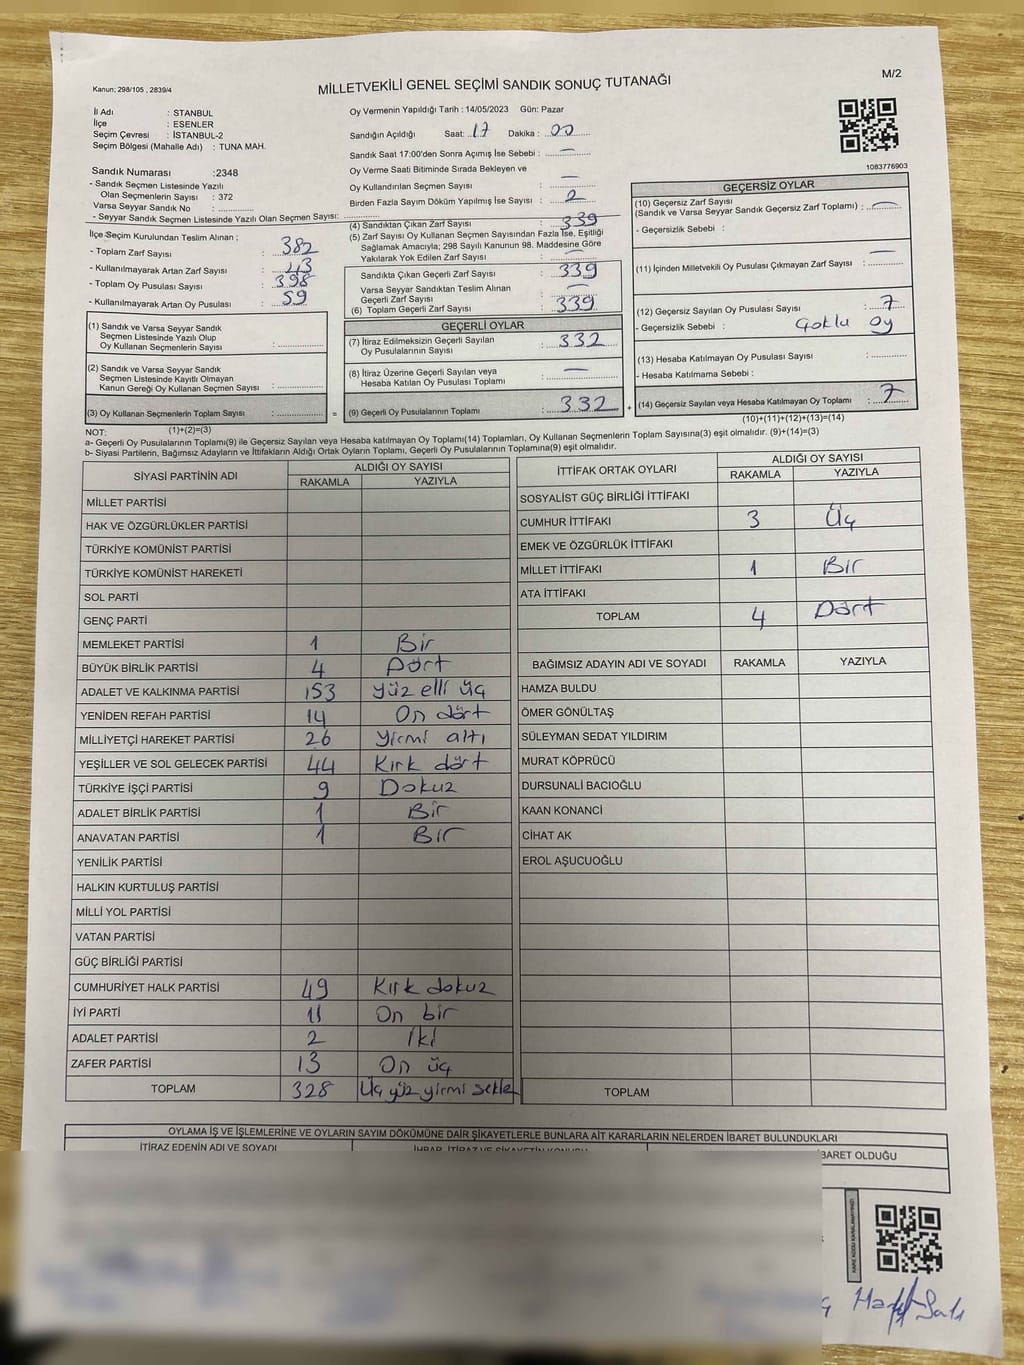 M/2
Kanun; 298/105 , 2839/4
MİLLETVEKİLİ GENEL SEÇİMİ SANDIK SONUÇ TUTANAĞI
İl Adı : STANBUL
İlçe : ESENLER
Seçim Çevresi : İSTANBUL-2
Seçim Bölgesi (Mahalle Adı) : TUNA MAH.
Sandık Numarası :2348
- Sandık Seçmen Listesinde Yazılı
Olan Seçmenlerin Sayısı : 372
Varsa Seyyar Sandık No :
- Seyyar Sandık Seçmen Listesinde Yazılı Olan Seçmen Sayısı:
İlçe Seçim Kurulundan Teslim Alınan ;
- Toplam Zarf Sayısı : 382
- Kullanılmayarak Artan Zarf Sayısı : 43
- Toplam Oy Pusulası Sayısı : 398
- Kullanılmayarak Artan Oy Pusulası : 59
(1) Sandık ve Varsa Seyyar Sandık
Seçmen Listesinde Yazılı Olup
Oy Kullanan Seçmenlerin Sayısı :
(2) Sandık ve Varsa Seyyar Sandık
Seçmen Listesinde Kayıtlı Olmayan
Kanun Gereği Oy Kullanan Seçmen Sayısı :
(3) Oy Kullanan Seçmenlerin Toplam Sayısı : =
(1)+(2)=(3)
Oy Vermenin Yapıldığı Tarih : 14/05/2023 Gün: Pazar
Sandığın Açıldığı Saat: 17 Dakika : 00
Sandık Saat 17:00'den Sonra Açımış İse Sebebi : —
Oy Verme Saati Bitiminde Sırada Bekleyen ve
Oy Kullandırılan Seçmen Sayısı : —
Birden Fazla Sayım Döküm Yapılmış İse Sayısı : 2
(4) Sandıktan Çıkan Zarf Sayısı : 339
(5) Zarf Sayısı Oy Kullanan Seçmen Sayısından Fazla İse, Eşitliği
Sağlamak Amacıyla; 298 Sayılı Kanunun 98. Maddesine Göre
Yakılarak Yok Edilen Zarf Sayısı : —
Sandıkta Çıkan Geçerli Zarf Sayısı : 339
Varsa Seyyar Sandıktan Teslim Alınan
Geçerli Zarf Sayısı : —
(6) Toplam Geçerli Zarf Sayısı : 339
GEÇERLİ OYLAR
(7) İtiraz Edilmeksizin Geçerli Sayılan
Oy Pusulalarının Sayısı : 332
(8) İtiraz Üzerine Geçerli Sayılan veya
Hesaba Katılan Oy Pusulası Toplamı : —
(9) Geçerli Oy Pusulalarının Toplamı : 332 +
1083776903
GEÇERSİZ OYLAR
(10) Geçersiz Zarf Sayısı
(Sandık ve Varsa Seyyar Sandık Geçersiz Zarf Toplamı) : —
- Geçersizlik Sebebi :
(11) İçinden Milletvekili Oy Pusulası Çıkmayan Zarf Sayısı : —
(12) Geçersiz Sayılan Oy Pusulası Sayısı : 7
- Geçersizlik Sebebi : Çoklu oy
(13) Hesaba Katılmayan Oy Pusulası Sayısı :
- Hesaba Katılmama Sebebi :
(14) Geçersiz Sayılan veya Hesaba Katılmayan Oy Toplamı : 7
(10)+(11)+(12)+(13)=(14)
NOT:
a- Geçerli Oy Pusulalarının Toplamı(9) ile Geçersiz Sayılan veya Hesaba katılmayan Oy Toplamı(14) Toplamları, Oy Kullanan Seçmenlerin Toplam Sayısına(3) eşit olmalıdır. (9)+(14)=(3)
b- Siyasi Partilerin, Bağımsız Adayların ve İttifakların Aldığı Ortak Oyların Toplamı, Geçerli Oy Pusulalarının Toplamına(9) eşit olmalıdır.
SİYASİ PARTİNİN ADI ALDIĞI OY SAYISI
RAKAMLA YAZIYLA
MİLLET PARTİSİ
HAK VE ÖZGÜRLÜKLER PARTİSİ
TÜRKİYE KOMÜNİST PARTİSİ
TÜRKİYE KOMÜNİST HAREKETİ
SOL PARTİ
GENÇ PARTİ
MEMLEKET PARTİSİ 1 Bir
BÜYÜK BİRLİK PARTİSİ 4 Dört
ADALET VE KALKINMA PARTİSİ 153 yüz elli üç
YENİDEN REFAH PARTİSİ 14 On dört
MİLLİYETÇİ HAREKET PARTİSİ 26 yirmi altı
YEŞİLLER VE SOL GELECEK PARTİSİ 44 Kırk dört
TÜRKİYE İŞÇİ PARTİSİ 9 Dokuz
ADALET BİRLİK PARTİSİ 1 Bir
ANAVATAN PARTİSİ 1 Bir
YENİLİK PARTİSİ
HALKIN KURTULUŞ PARTİSİ
MİLLİ YOL PARTİSİ
VATAN PARTİSİ
GÜÇ BİRLİĞİ PARTİSİ
CUMHURİYET HALK PARTİSİ 49 Kırk dokuz
İYİ PARTİ 11 On bir
ADALET PARTİSİ 2 İki
ZAFER PARTİSİ 13 On üç
TOPLAM 328 Üç yüz yirmi sekiz
İTTİFAK ORTAK OYLARI ALDIĞI OY SAYISI
RAKAMLA YAZIYLA
SOSYALİST GÜÇ BİRLİĞİ İTTİFAKI
CUMHUR İTTİFAKI 3 Üç
EMEK VE ÖZGÜRLÜK İTTİFAKI
MİLLET İTTİFAKI 1 Bir
ATA İTTİFAKI
TOPLAM 4 Dört
BAĞIMSIZ ADAYIN ADI VE SOYADI RAKAMLA YAZIYLA
HAMZA BULDU
ÖMER GÖNÜLTAŞ
SÜLEYMAN SEDAT YILDIRIM
MURAT KÖPRÜCÜ
DURSUNALİ BACIOĞLU
KAAN KONANCİ
CİHAT AK
EROL AŞUCUOĞLU
TOPLAM
OYLAMA İŞ VE İŞLEMLERİNE VE OYLARIN SAYIM DÖKÜMÜNE DAİR ŞİKAYETLERLE BUNLARA AİT KARARLARIN NELERDEN İBARET BULUNDUKLARI
İTİRAZ EDENİN ADI VE SOYADI İHBAR, İTİRAZ VE ŞİKAYETİN KONUSU BARET OLDUĞU